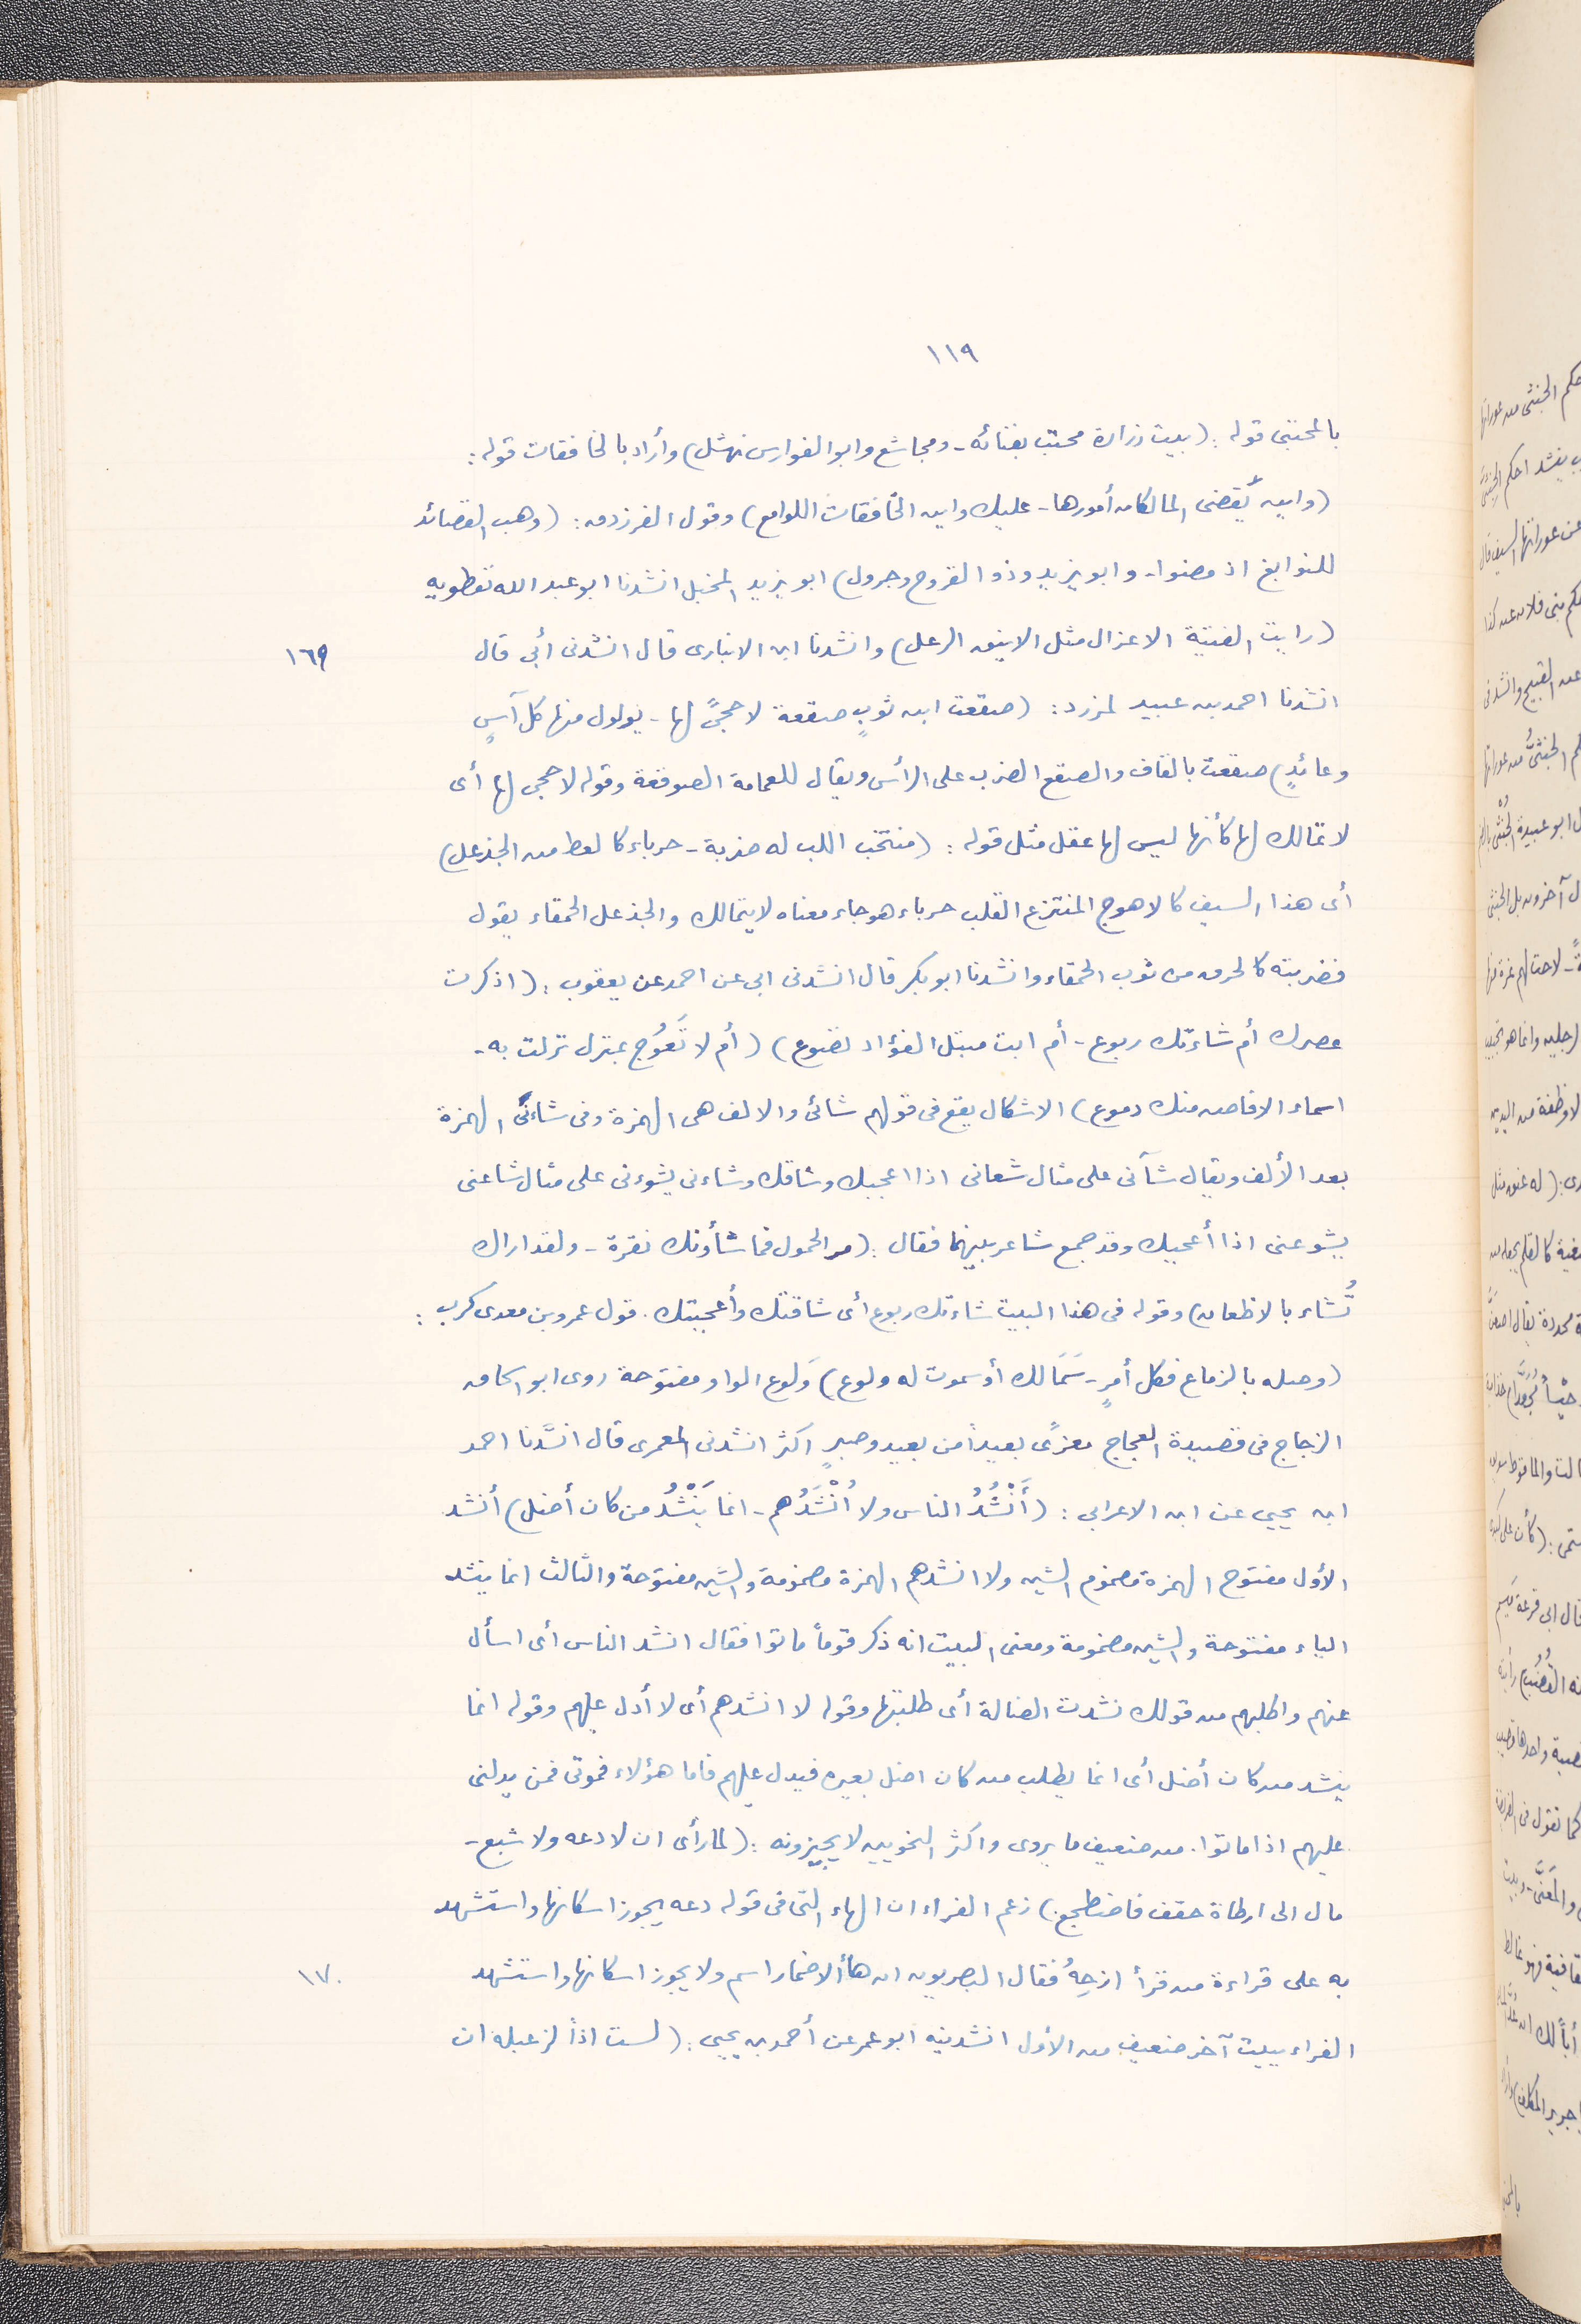 ١١٩
بالمحتبى قوله : (بيت زرارة محتب بفنائه - ومجاشع وابو الفوارس نهشل) وأراد بالخافقات قوله :
(واين يُقضى المالكان أمورها - عليك واين الخافقات اللوامع) وقول الفرزدق : (وهب القصائد
للنوابغ اذ مضوا - وابو يزيد وذو القروح وجرول) ابو يزيد المخبل انشدنا ابو عبد الله نفطويه
(رايت الفتية الاعزال مثل الاينق الرعل) وانشدنا ابن الانبارى قال انشدنى أبى قال
١٦٩
انشدنا احمد بن عبيد لمزرد : (صقعت ابن ثوبٍ صقعة لا حجىً لها - يولول منها كل آسٍ
وعائدٍ) صقعت بالقاف والصقع الضرب على الرأس ويقال للعمامة الصوقعة وقوله لا حجى لها أى
لا تمالك لها كأنها ليس لها عقل مثل قوله : (منتخب اللب له ضربة - خرباء كالعط من الخذعل)
أى هذا السيف كالاهوج المنتزع القلب خرباء هوجاء معناه لا يتمالك والخذعل الحمقاء يقول
فضربته كالخرق من ثوب الحمقاء وانشدنا ابو بكر قال انشدنى ابى عن احمد عن يعقوب : (اذكرت
عصرك أم شاءتك ربوع - أم انت متبل الفؤاد تضوع) (أم لا تَعُوج بمنزل نزلت به -
اسماء الا فاض منك دموع) الاشكال يقع فى قولهم شائى والالف هى الهمزة وفى شاءنى الهمزة
بعد الألف ويقال شآنى على مثال شعانى اذا اعجبك وشاقك وشاءنى يشوءنى على مثال شاعنى
يشوعنى اذا أعجبك وقد جمع شاعر بينهما فقال : (مر الحمول فما شأونك نقرة - ولقد اراك
تُشاء بالاظعان) وقوله فى هذا البيت شاءتك ربوع أى شاقتك وأعجبتك . قول عمرو بن معدى كرب :
(وصله بالزماع فكل أمرٍ - سَمَا لك أو سموت له ولوع) وَلوع الواو مفتوحة روى ابو اسحاق
الزجاج فى قصيدة العجاج مغزًى بعيداً من بعيد وصبرٍ اكثر انشدنى المعمرى قال انشدنا احمد
ابن يحيى عن ابن الاعرابى : (أَنْشُدُ الناس ولا اُنْشَدُهم - انما يَنْشُدُ من كان أضل) أنشد
الأول مفتوح الهمزة مضموم الشين ولا انشدهم الهمزة مضمومة والشين مفتوحة والثالث انما ينشد
الياء مفتوحة والشين مضمومة ومعنى البيت انه ذكر قوماً ماتوا فقال انشد الناس أى اسأل
عنهم واطلبهم من قولك نشدت الضالة أى طلبتها وقوله لا انشدهم أى لا أدل عليهم وقوله انما
ينشد من كان أضل أى انما يطلب من كان اضل بعيره فيدل عليهم فاما هؤلاء فموتى فمن يدلنى
عليهم اذا ماتوا . من ضعيف ما يروى واكثر النحويين لا يجيزونه : (لما رأى ان لا دعه ولا شبع -
مال الى ارطاة حقف فاضطجع) زعم الفراء ان الهاء التى فى قوله دعه يجوز اسكانها واستشهد
به على قراءة من قرأ ارجِهْ فقال البصريون ان هأ الاضمار اسم ولا يجوز اسكانها واستشهد
١٧٠
الفراء ببيت آخر ضعيف من الأول انشدنيه ابو عمر عن أحمد بن يحيى : (لست اذاً لزعبله ان